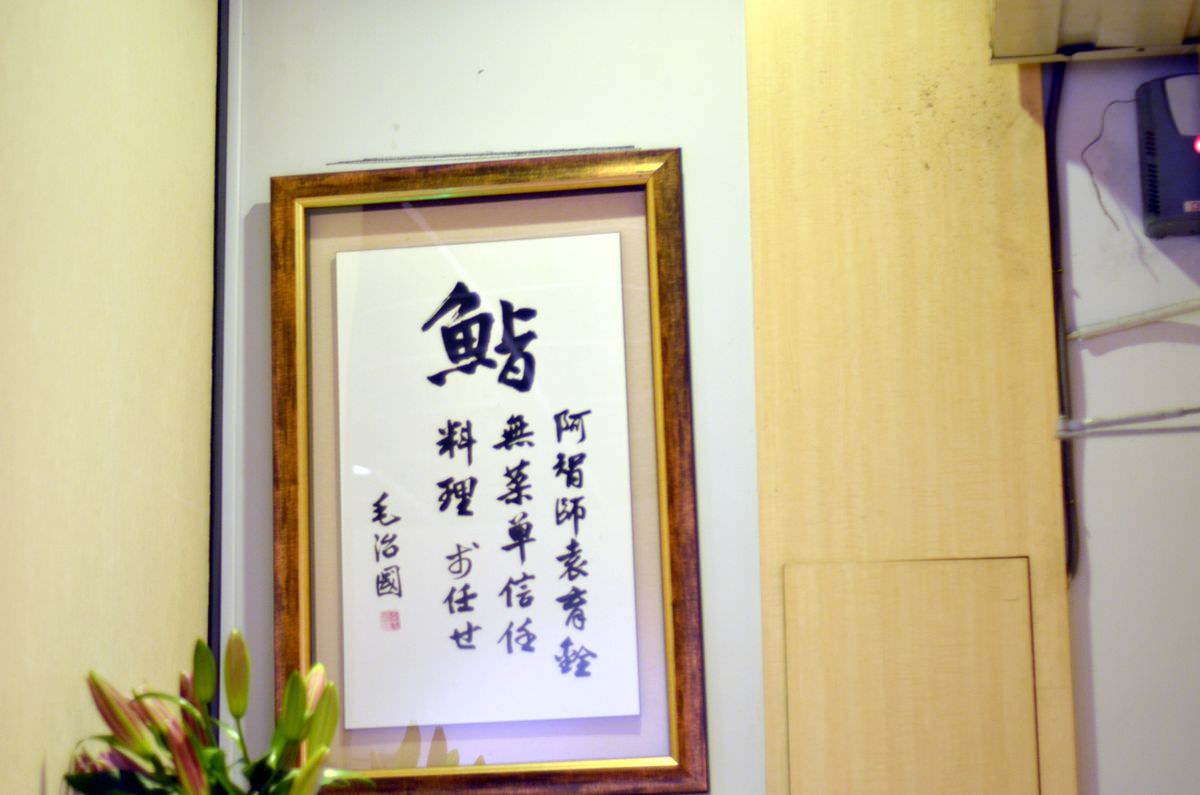 鮨
阿智師袁育銓
無菜單信任
料理 お任せ
毛治國